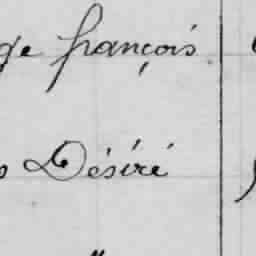 françois
Désiré
"